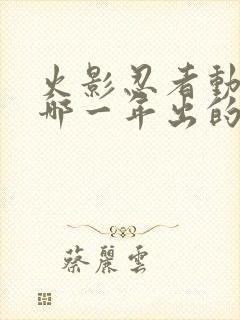 火影忍者動
哪一年出的
蔡麗雲